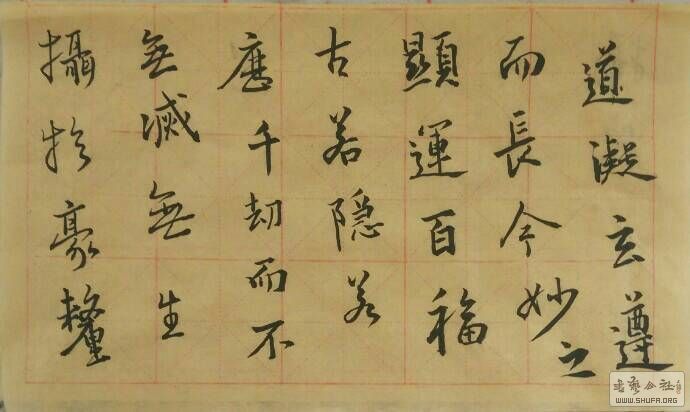 攝於豪釐
無滅無生
歷千劫而不
古若隱若
顯運百福
而長今妙
道凝玄遵之
書藝公社
WWW.SHUFA.ORG